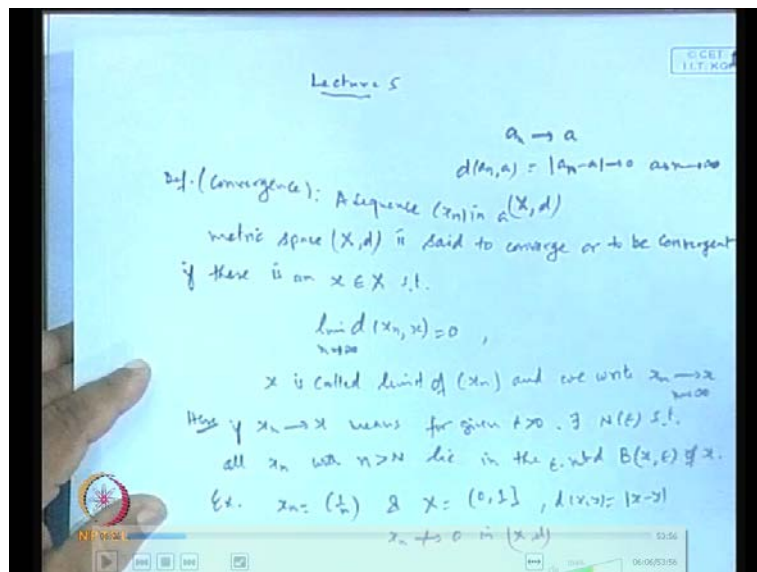 © CET
I.I.T. KGP
Lecture 5
aₙ → a
d(aₙ, a) = |aₙ - a| → 0 as n → ∞
Def. (Convergence): A sequence (xₙ) in a (X, d)
metric space (X, d) is said to converge or to be convergent
if there is an x ∈ X s.t.
lim d(xₙ, x) = 0 ,
n→∞
x is called limit of (xₙ) and we write xₙ → x
n→∞
Here if xₙ → x means for given ε>0 . ∃ N(ε) s.t.
all xₙ with n > N lie in the ε-nbd B(x, ε) of x.
Ex. xₙ = (1/n) & X = (0, 1] , d(x, y) = |x-y|
xₙ ↛ 0 in (X, d)
NPTEL
53:56
06:06/53:56